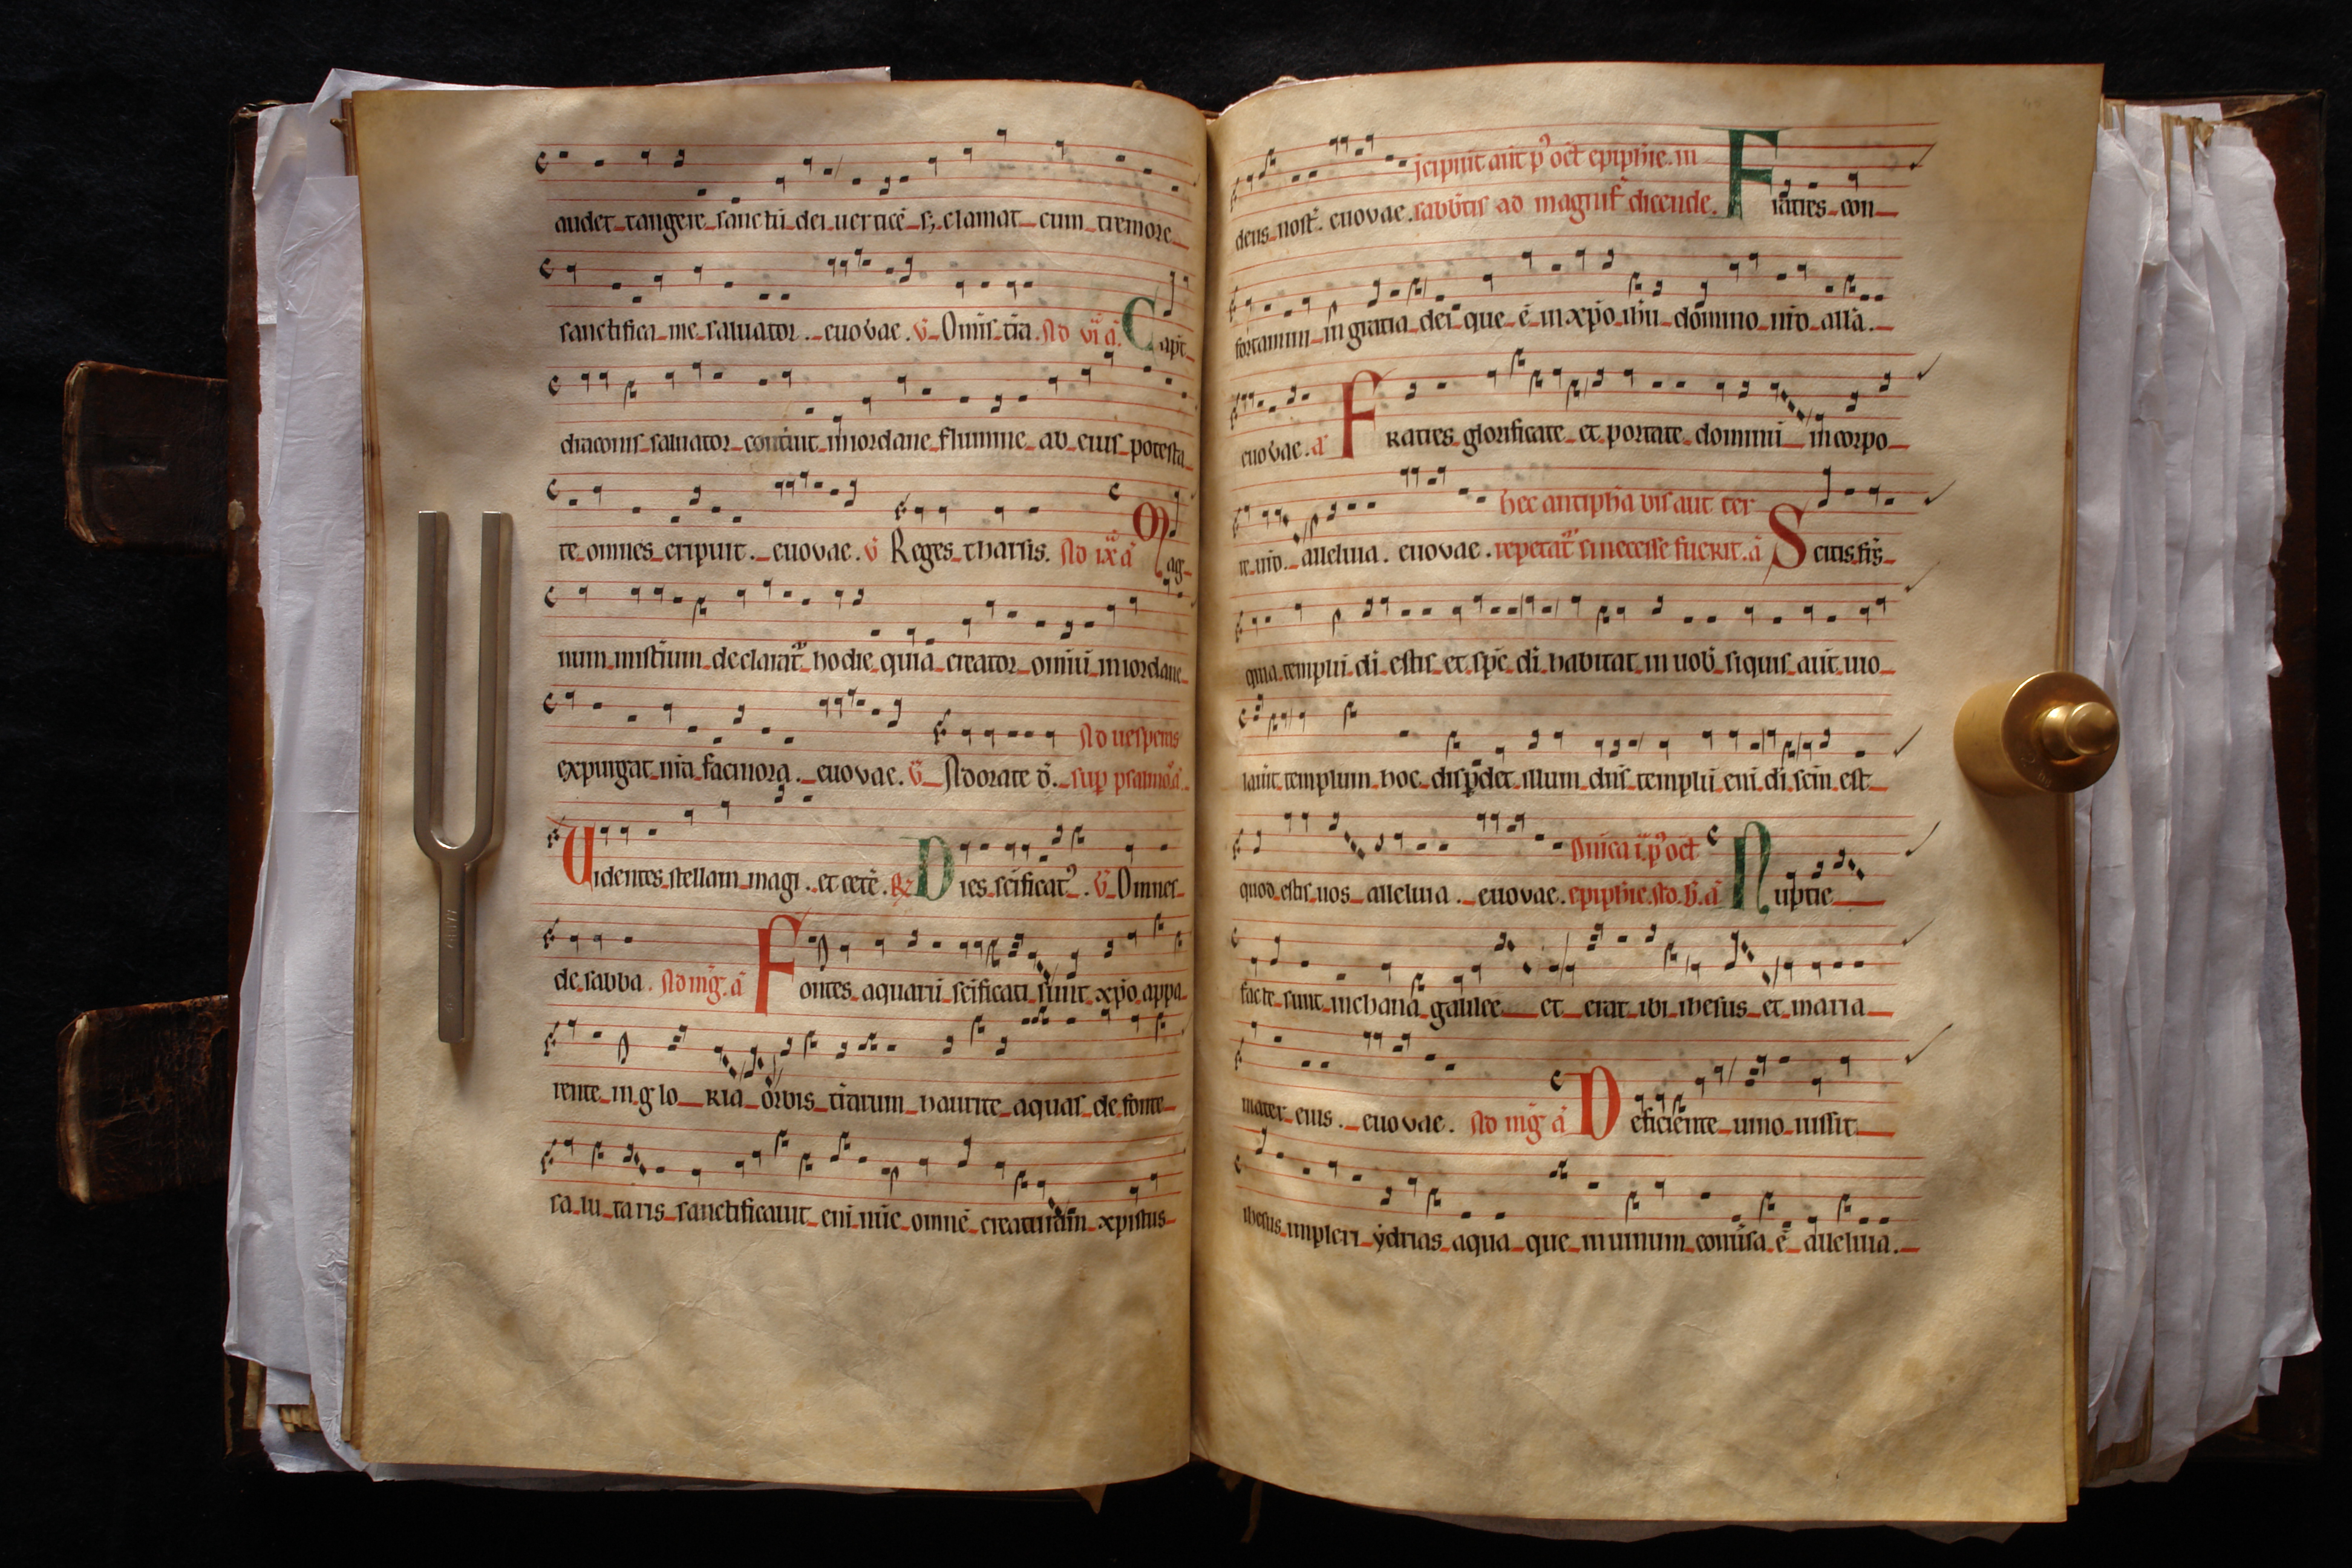 audet tangere sanctū dei uerticē s; clamat cum tremore
sanctifica me saluator . euovae . v̄ Om̄s tr̄a . Ad vi ā . Capt
diaconis saluator cōtriuit in iordane flumine ab eius potesta
te omnes eripuit . euovae . v̄ Reges tharsis . Ad ix ā Mag
num mist̄ium declarat̄ hodie quia creator omiū in iordane
expurgat nr̄a facinora . euovae . v̄ Adorate d̄ . Ad uesperas sup psalmo ā .
Uidentes stellam magi . et ceter̄ . R Dies sc̄ificat᾽ . v̄ Omnes
de sabba . Ad mḡ . ā Fontes aquarū sc̄ificati sunt xp̄o appa
rente in glo ria orbis tr̄arum haurite aquas de fonte
sa lu taris sanctificauit eni nūc omnē creaturam xpistus
Incipiūt ant̄ p᾽ oct̄ epiphīe . in
deus nost̄ . euovae . sabb̄tis ad magnif̄ dicende . Fratres con
fortamini in gratia dei que ē in xp̄o ih̄u domino nr̄o all̄a .
euovae . ā Fratres glorificate et portate dominū in corpo
hec antiph̄a bis aut ter
re ur̄o . alleluia . euovae . repetat̄ si necesse fuerit . ā Scitis fr̄s
quia templū di estis et sp̄c di habitat in uob̄ siquis aūt uio
lauit templum hoc disp̄det illum dn̄s templū eni di sc̄m est
Dn̄ica i . p᾽ oct̄
quod estis uos alleluia . euovae . epiphīe . Ad . b̄ . ā Nuptie
facte sunt in chana galilee et erat ibi ihesus et maria
mater eius . euovae . Ad mḡ ā Deficiente uino iussit
ihesus impleri ydrias aqua que in uinum conu̅sa ē alleluia .